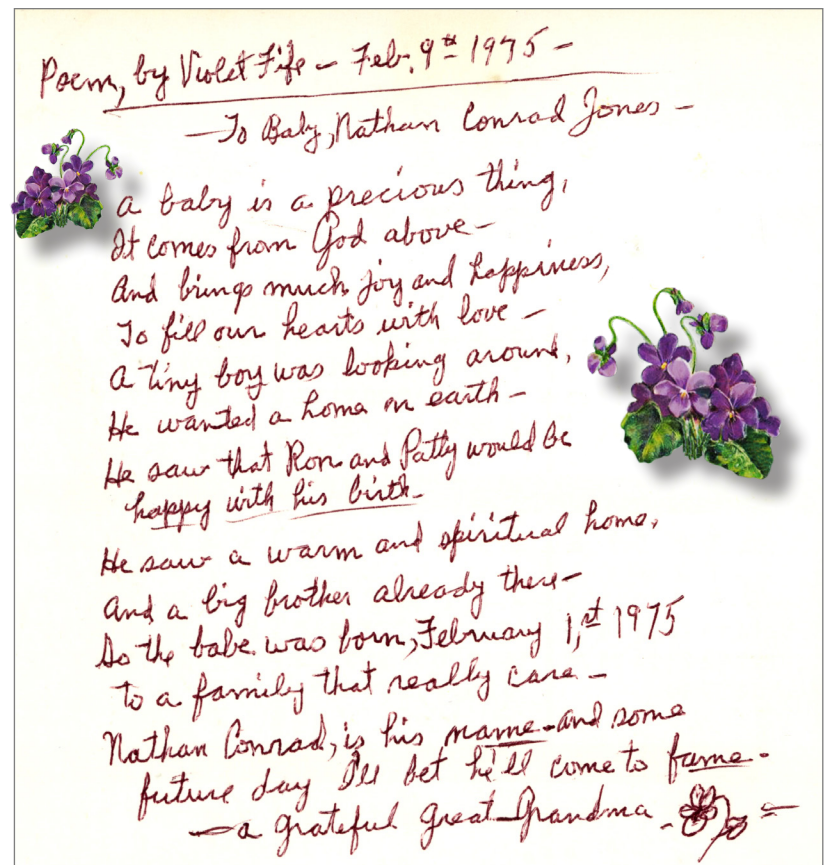 Poem, by Violet Fife - Feb. 9th 1975 -
- To Baby, Nathan Conrad Jones -
A baby is a precious thing,
It comes from God above -
And brings much joy and happiness,
To fill our hearts with love -
A tiny boy was looking around,
He wanted a home on earth -
He saw that Ron and Patty would be
happy with his birth -
He saw a warm and spiritual home,
And a big brother already there -
So the babe was born, February 1,st 1975
to a family that really care -
Nathan Conrad, is his name - and some
future day I'll bet he'll come to fame -
- a grateful great-Grandma -